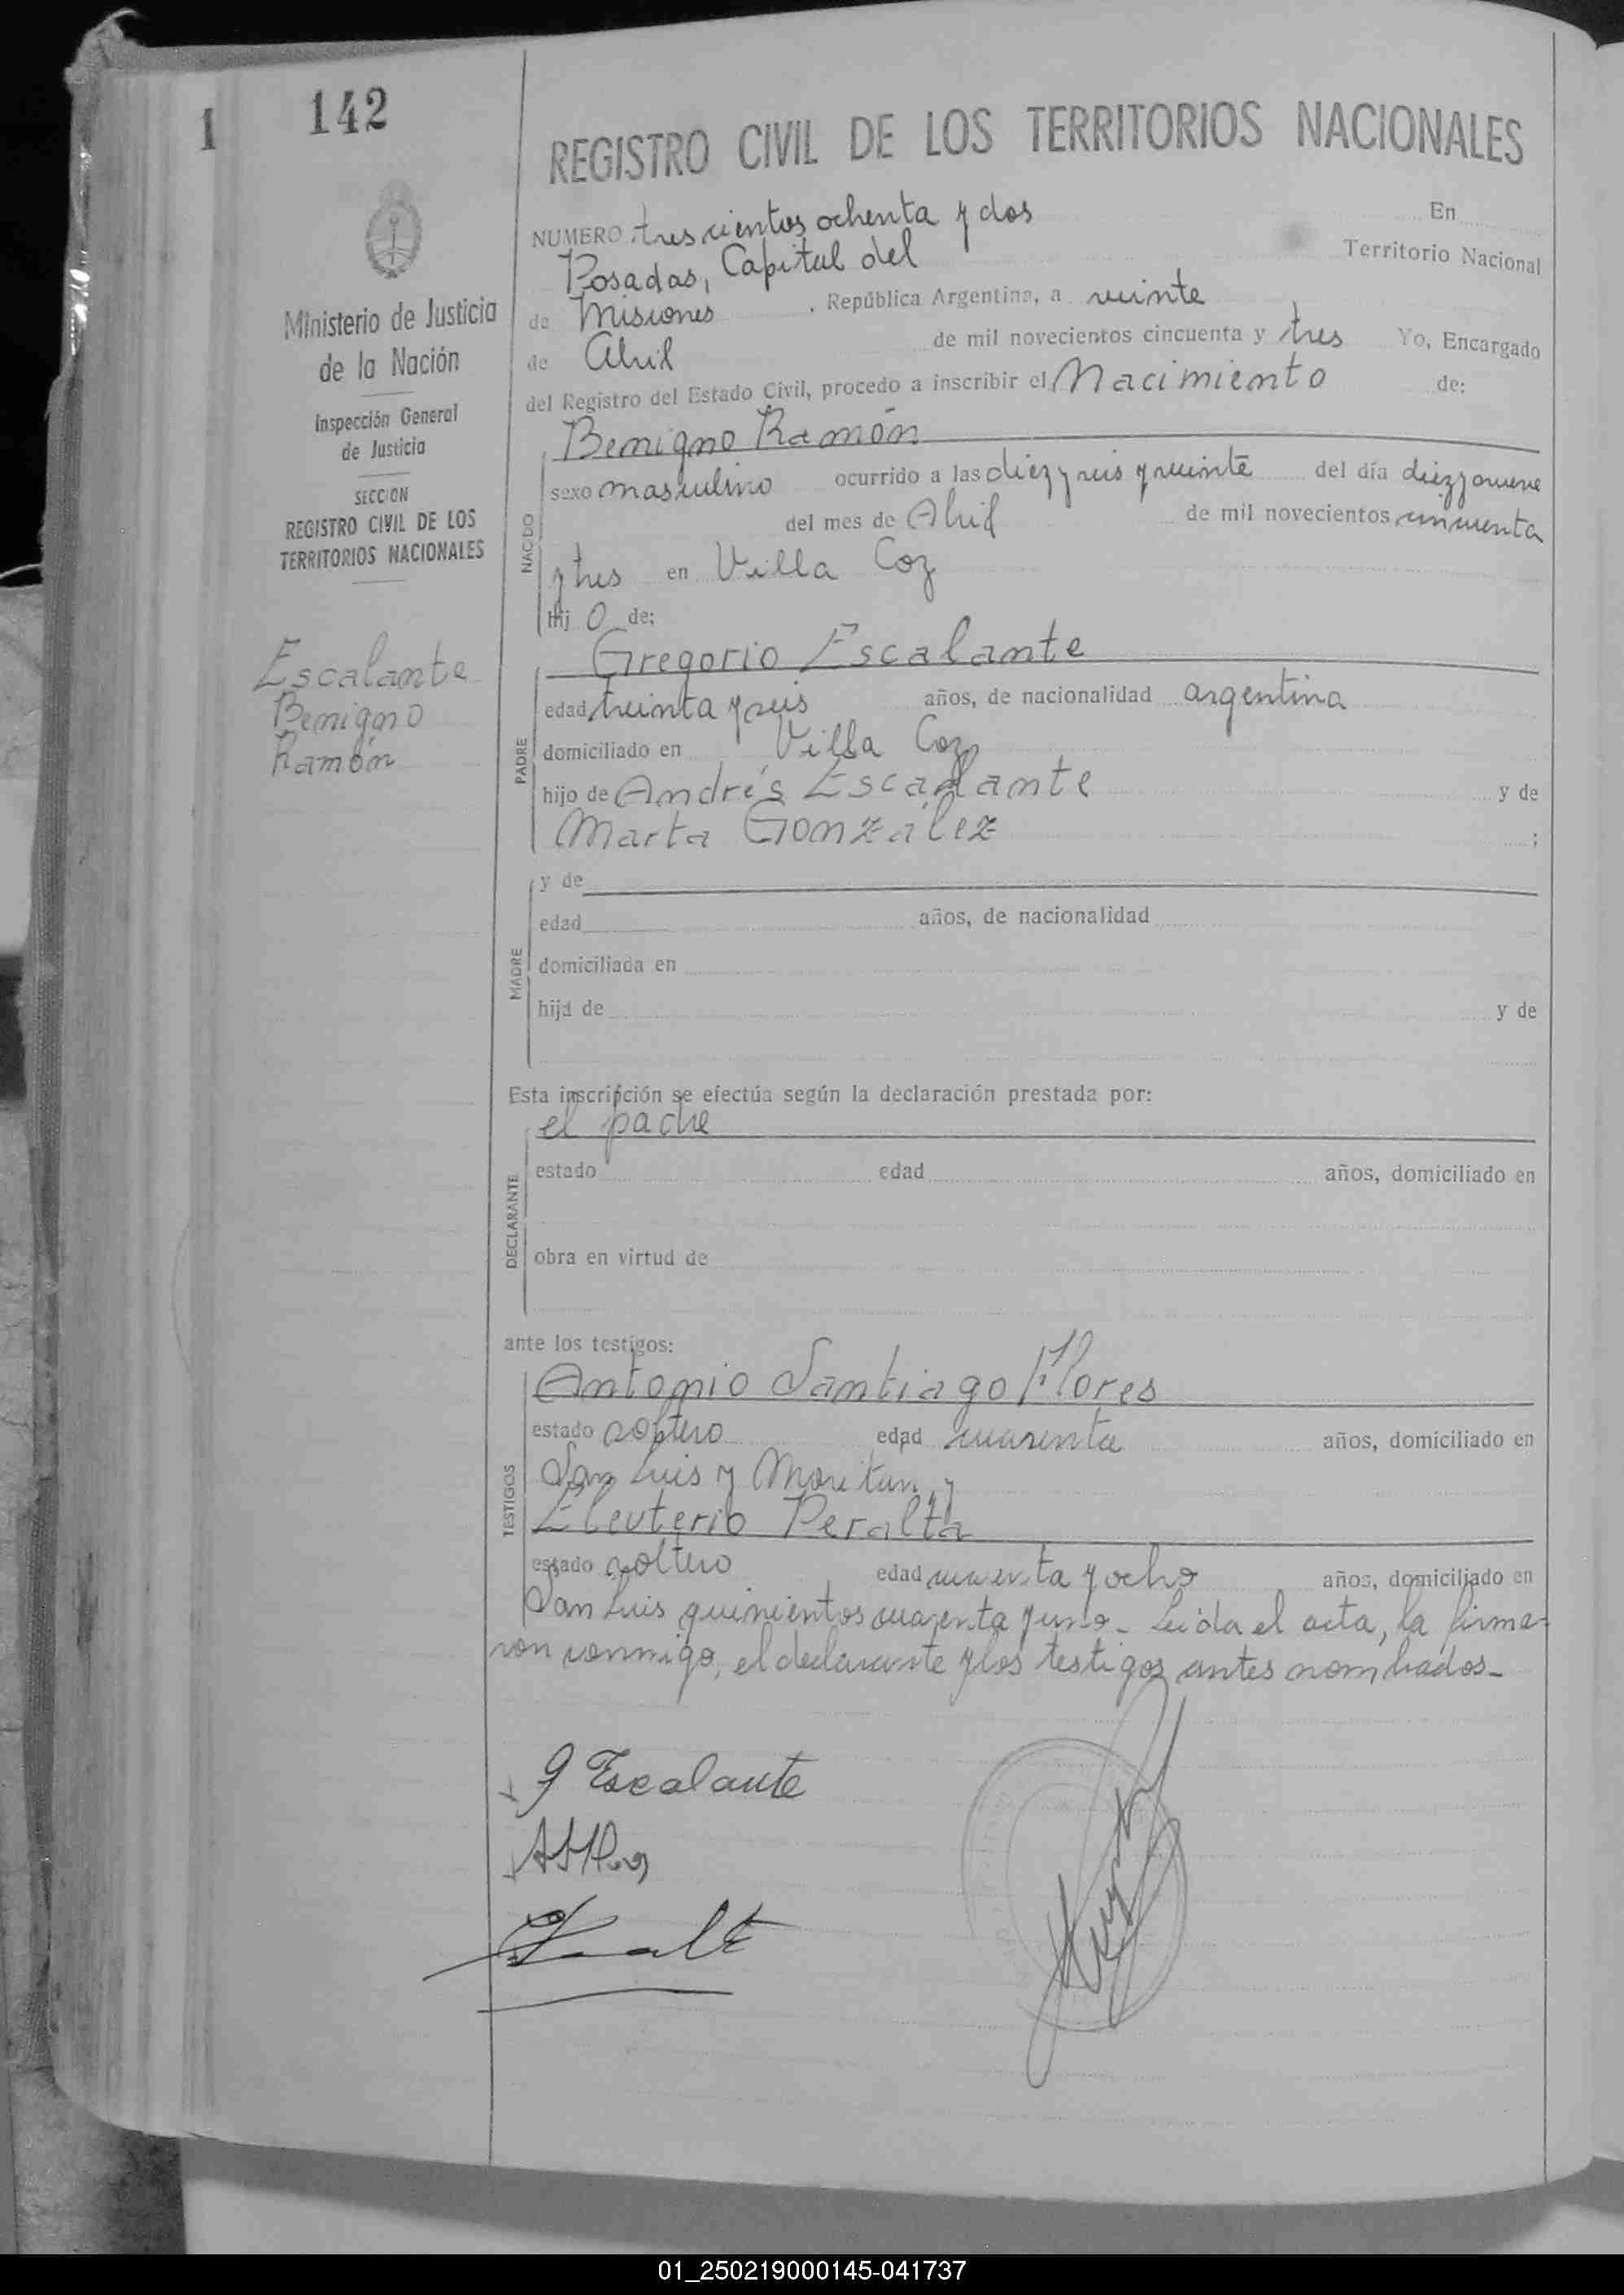 1
142
REGISTRO CIVIL DE LOS TERRITORIOS NACIONALES
Ministerio de Justicia
de la Nación
Inspección General
de Justicia
SECCION
REGISTRO CIVIL DE LOS
TERRITORIOS NACIONALES
Escalante
Benigno
Ramón
NUMERO trescientos ochenta y dos En
Posadas, Capital del Territorio Nacional
de Misiones, República Argentina, a veinte
de Abril de mil novecientos cincuenta y tres Yo, Encargado
del Registro del Estado Civil, procedo a inscribir el Nacimiento de:
Benigno Ramón
NACIDO
sexo masculino ocurrido a las diez y seis y veinte del día diez y nueve
del mes de Abril de mil novecientos cincuenta
y tres en Villa Coz
Hij o de:
Gregorio Escalante
PADRE
edad treinta y seis años, de nacionalidad argentina
domiciliado en Villa Coz
hijo de Andrés Escalante y de
Marta González ;
MADRE
y de
edad años, de nacionalidad
domiciliada en
hija de y de
Esta inscripción se efectúa según la declaración prestada por:
el padre
DECLARANTE
estado edad años, domiciliado en
obra en virtud de
ante los testigos:
TESTIGOS
Antonio Santiago Flores
estado soltero edad cuarenta años, domiciliado en
San Luis y y
Eleuterio Peralta
estado soltero edad cuarenta y ocho años, domiciliado en
San Luis quinientos cuarenta y uno.- Leída el acta, la firma-
ron conmigo, el declarante y los testigos antes nombrados.-
G Escalante
01_250219000145-041737